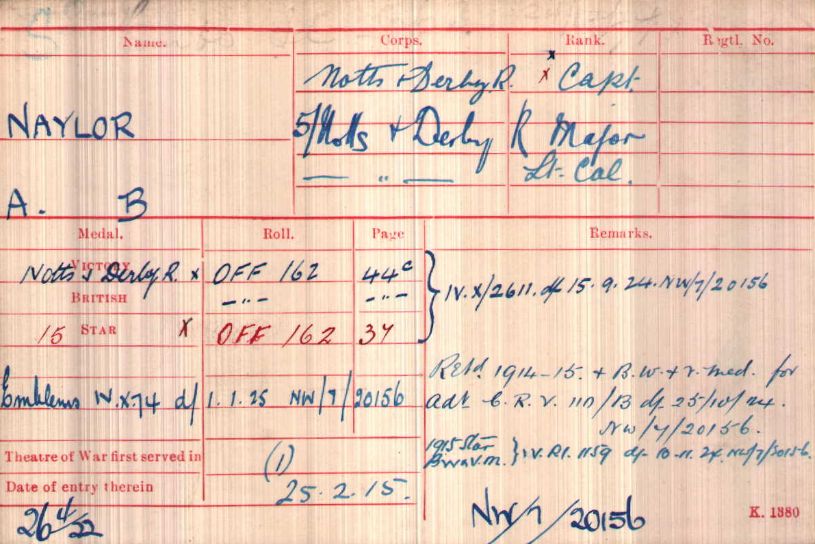 Name. Corps. Rank. Regtl. No.
Notts & Derby. R. x Capt.
NAYLOR 5/Notts & Derby R Major
— " — Lt-Col.
A. B
Medal. Roll. Page Remarks.
VICTORY
Notts & Derby R. x OFF 162 44c
BRITISH — " — — " —
IV.X/2611. df 15.9.24. NW/7/20156
15 STAR x OFF 162 37
Retd. 1914-15. + B.W. + V. med. for
Emblems IV.X.74 df 1.1.25 NW/7/20156
adt C.R.V. 110/B df 25/10/24.
NW/7/20156.
1915 Star
B.W & V.M. } IV.R1. 1159 df 10.11.24. NW/7/20156.
Theatre of War first served in (1)
Date of entry therein 25.2.15.
26/4/22 NW/7/20156 K. 1380